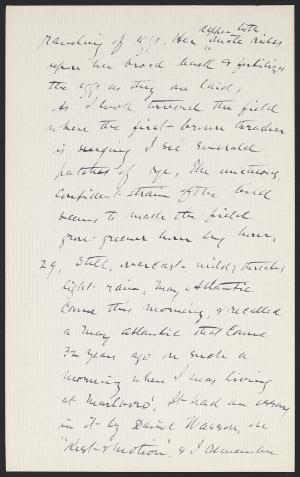 dapper little
of eggs. Her mate rides
upon her broad back & fertilizes
the eggs as they are laid,
As I look toward the field
where the first brown thrasher
is singing I see emerald
patches of rye, The unctuous,
confident strain of the bird
seems to make the fields
grow greener hour by hour,
29, Still, overcast - mild; threatens
light rain, May Atlantic
came this morning, & recalled
a May Atlantic that came
32 years ago on such a
morning when I was living
at Marlboro', It had an essay
in it by David Wasson, on
"Rest & Motion", & I remember